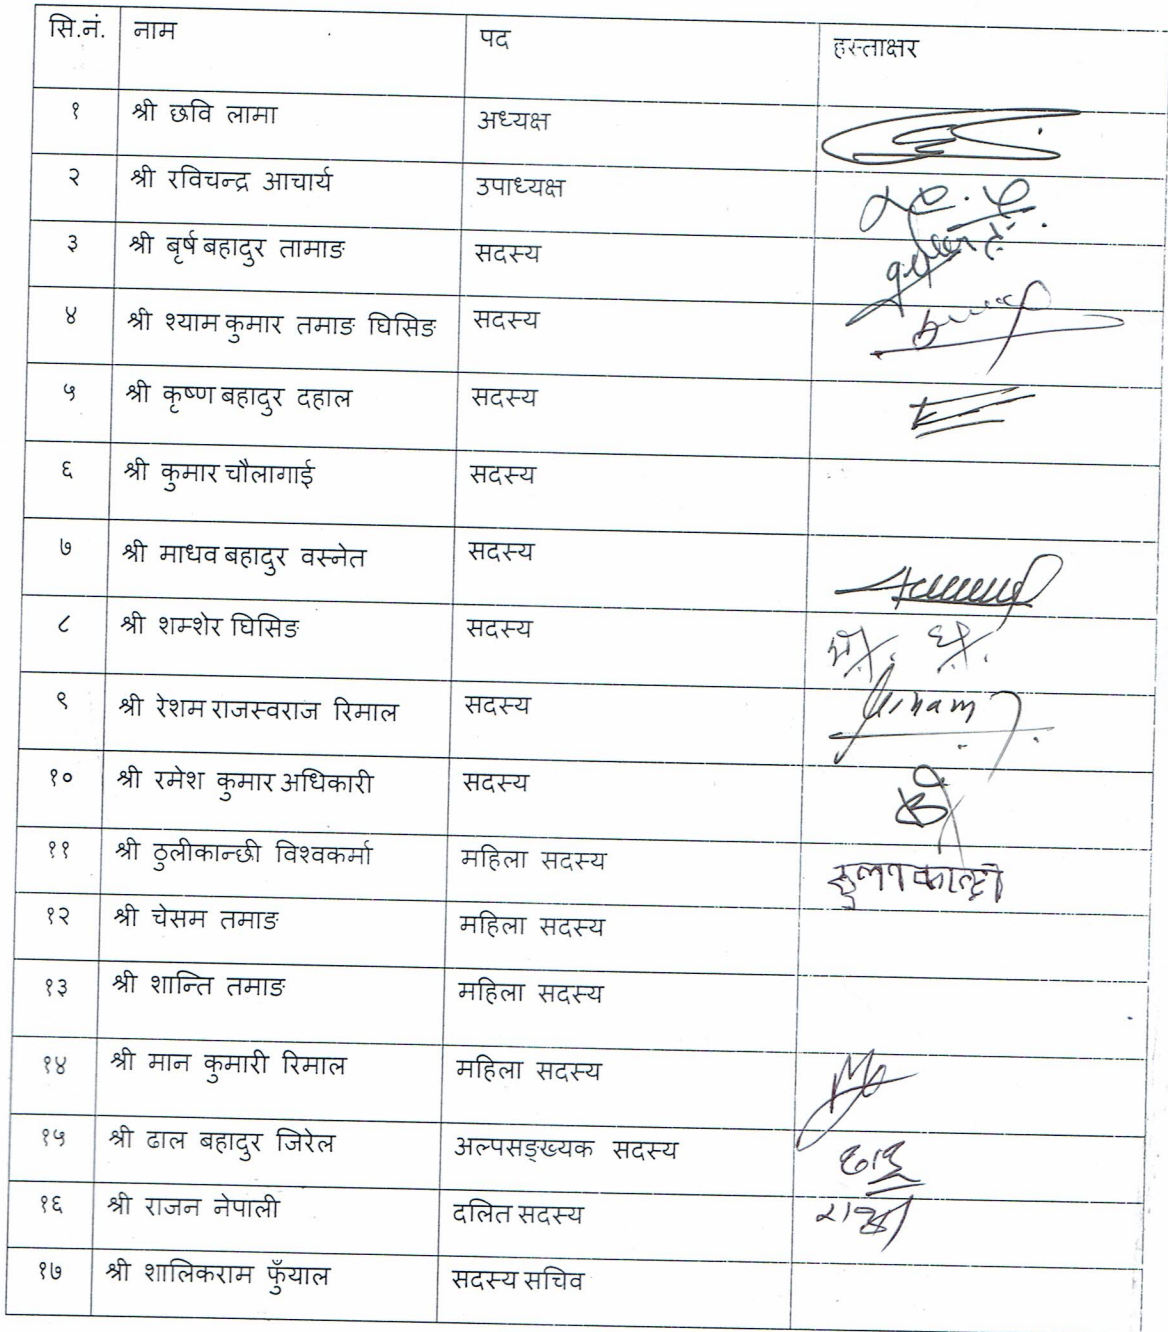 सि.नं. नाम पद हस्ताक्षर
१ श्री छवि लामा अध्यक्ष
२ श्री रविचन्द्र आचार्य उपाध्यक्ष
३ श्री बृर्ष बहादुर तामाङ सदस्य
४ श्री श्याम कुमार तमाङ घिसिङ सदस्य
५ श्री कृष्ण बहादुर दहाल सदस्य
६ श्री कुमार चौलागाई सदस्य
७ श्री माधव बहादुर वस्नेत सदस्य
८ श्री शम्शेर घिसिङ सदस्य
९ श्री रेशम राजस्वराज रिमाल सदस्य
१० श्री रमेश कुमार अधिकारी सदस्य
११ श्री ठुलीकान्छी विश्वकर्मा महिला सदस्य
१२ श्री चेसम तमाङ महिला सदस्य
१३ श्री शान्ति तमाङ महिला सदस्य
१४ श्री मान कुमारी रिमाल महिला सदस्य
१५ श्री ढाल बहादुर जिरेल अल्पसङ्ख्यक सदस्य
१६ श्री राजन नेपाली दलित सदस्य
१७ श्री शालिकराम फुँयाल सदस्य सचिव